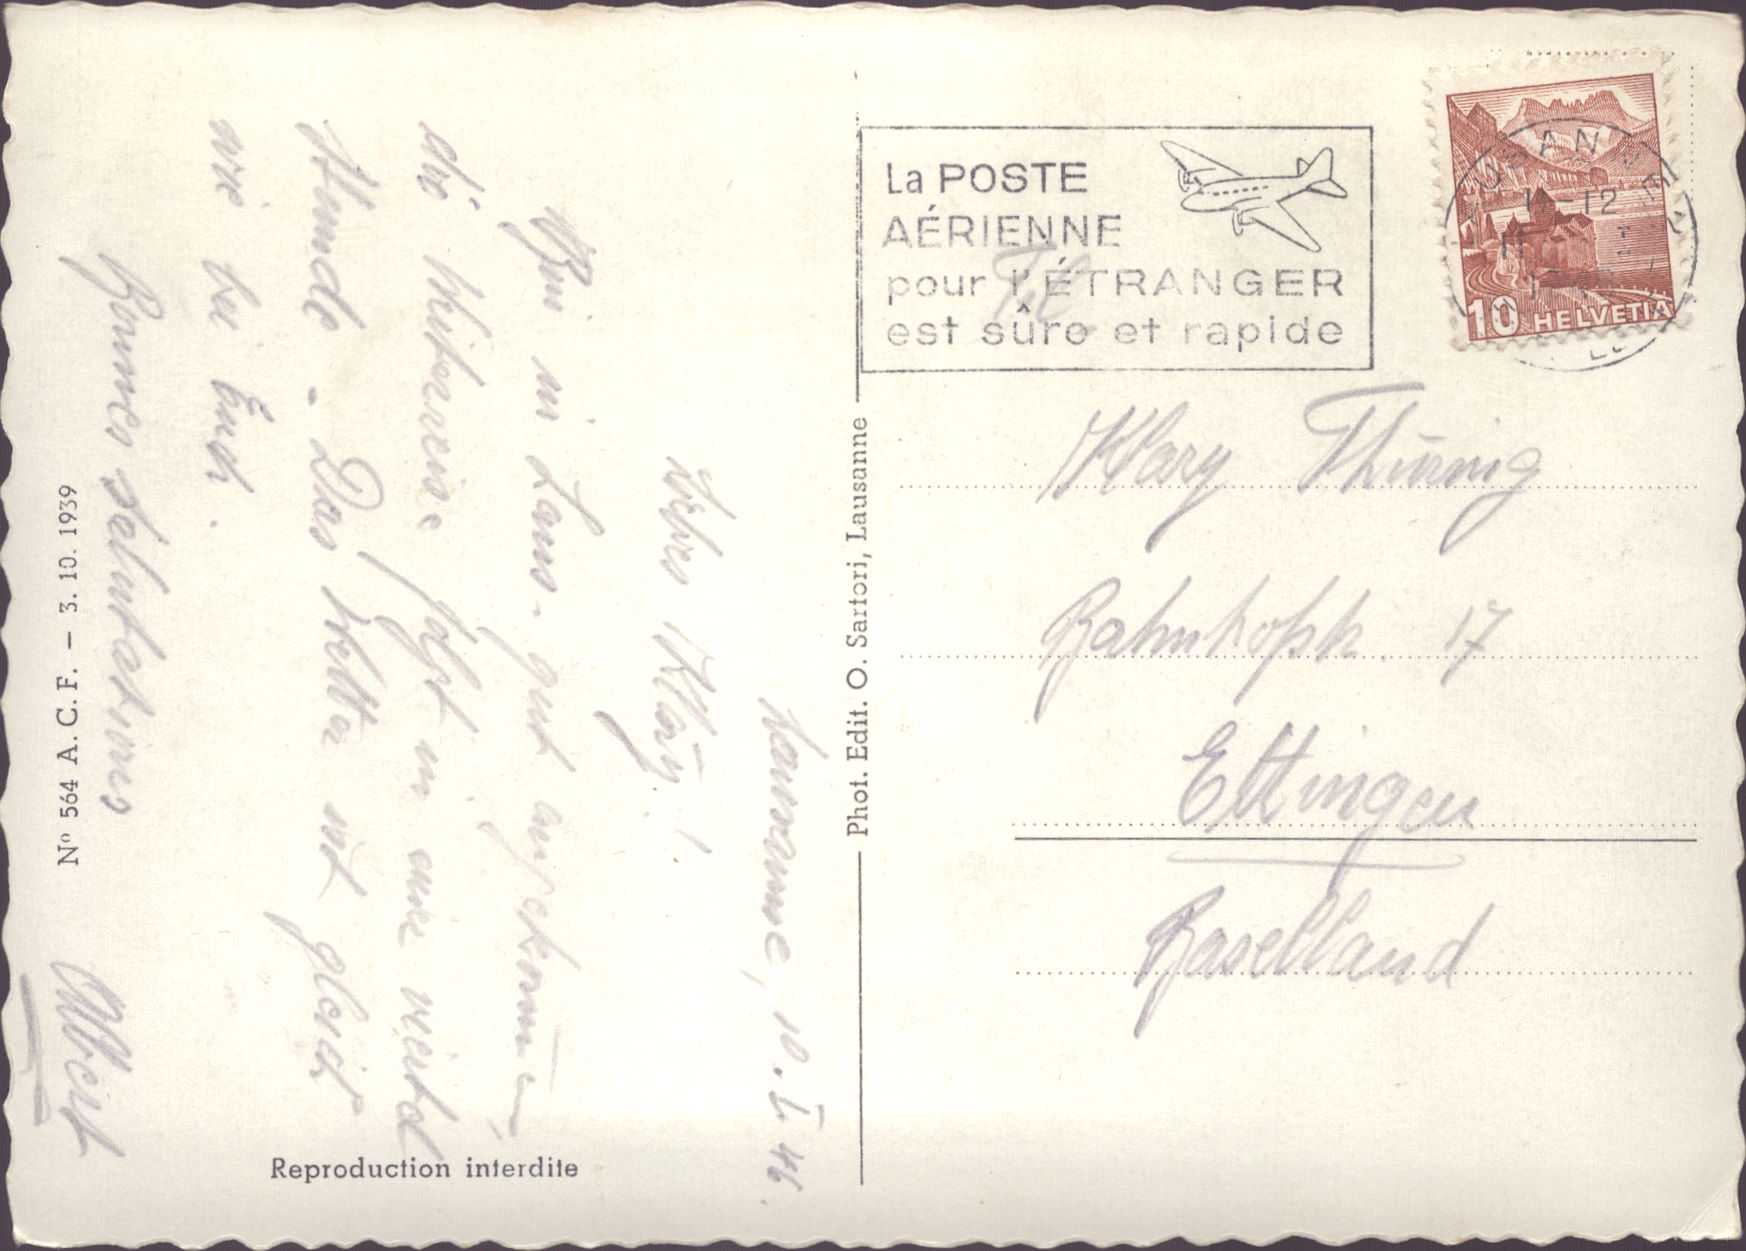 Lausanne, 10. I. 46.
Liebes Kläry!
Bin in Laus. gut angekommen
die Weiterreise folgt in einer viertel
Stunde - Das Wetter ist gleich
wie bei Euch.
Bonnes salutations
Albert
N° 564 A. C. F. – 3. 10. 1939
Reproduction interdite
Phot. Edit. O. Sartori, Lausanne
La POSTE
AÉRIENNE
pour l'ÉTRANGER
est sûre et rapide
10 HELVETIA
Klary Thüring
Bahnhofstr. 17
Ettingen
Baselland